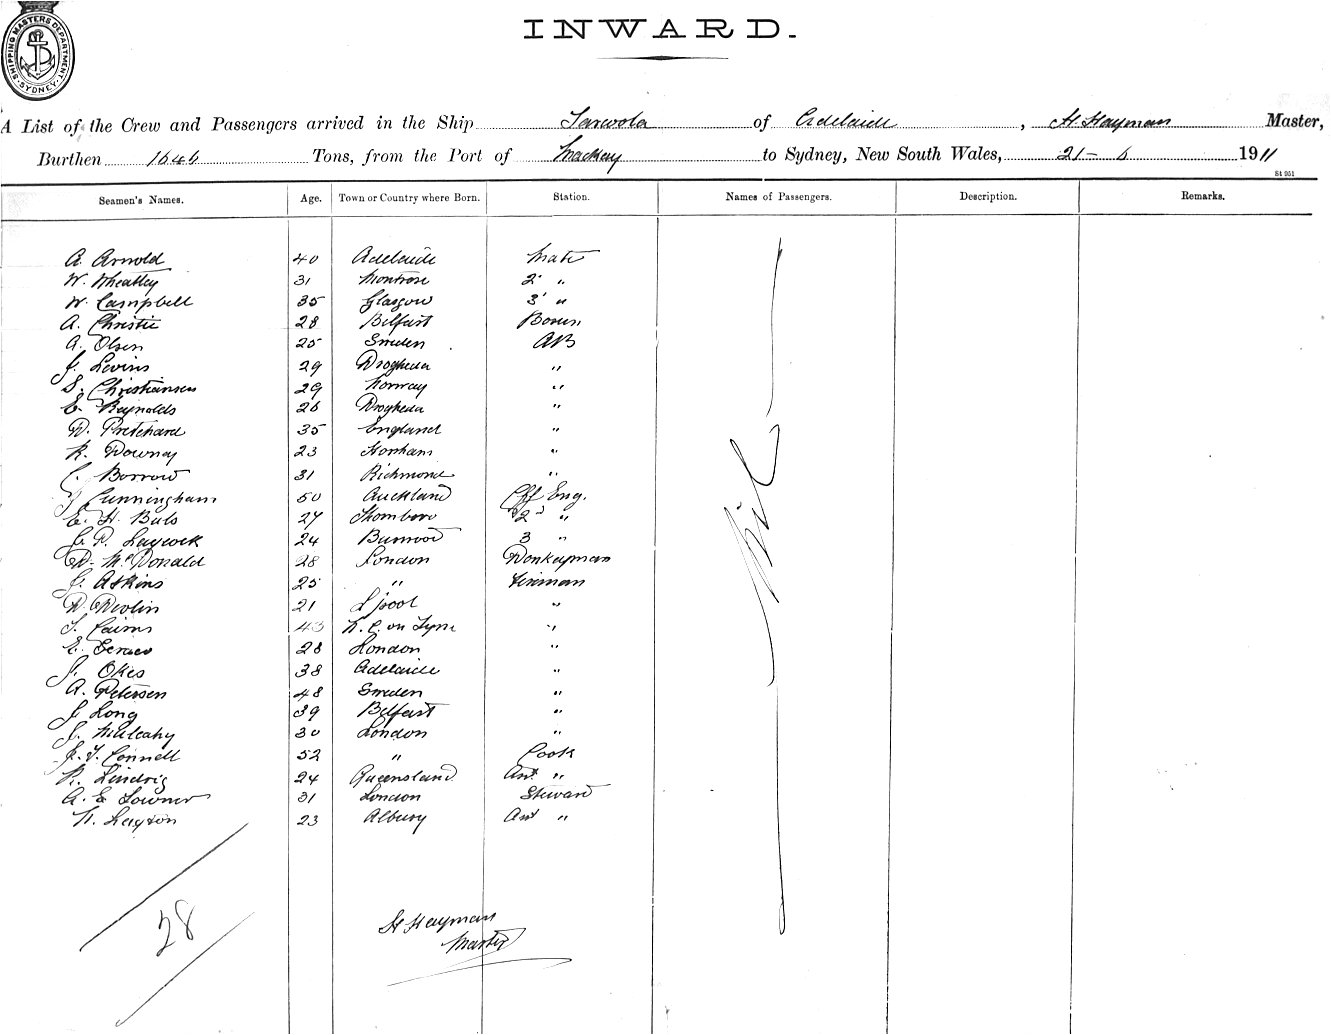 SHIPPING MASTERS DEPARTMENT
SYDNEY
INWARD.
A List of the Crew and Passengers arrived in the Ship Tarcoola of Adelaide, H. Hayman Master,
Burthen 1646 Tons, from the Port of Mackay to Sydney, New South Wales, 21-6 1911
St 951
Seamen's Names. Age. Town or Country where Born. Station. Names of Passengers. Description. Remarks.
A. Arnold 40 Adelaide Mate
W. Wheatley 31 Montrose 2d "
W. Campbell 35 Glasgow 3d "
A. Christie 28 Belfast Bosun
A. Olsen 25 Sweden AB
J. Levins 29 Drogheda "
S. Christiansen 29 Norway "
E. Reynolds 26 Drogheda "
D. Pretchard 35 England "
R. Downey 23 Horsham "
C. Borrow 31 Richmond "
J. Cunningham 50 Auckland Chf Eng.
E. H. 27 2d "
D. Laycock 24 Burwood 3 "
D. McDonald 28 London Donkeyman
J. Askins 25 " Fireman
D. Devlin 21 L'pool "
T. Cairns 43 N. C. on Tyne "
E. 28 London "
J. Okes 38 Adelaide "
A. Petersen 48 Sweden "
J. Long 39 Belfast "
J. Mulcahy 30 London "
J. T. Connell 52 " Cook
R. 24 Queensland Asst "
A. E. Towner 31 London Steward
W. Layton 23 Albury Asst "
Nil
28
H Hayman
Master